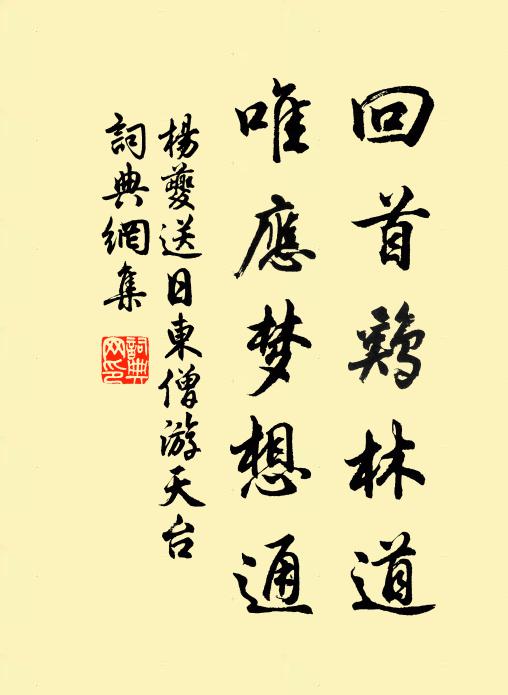 回首鷄林道
唯應梦想通
楊夔送日東僧游天台
詞典網集
詞典网印